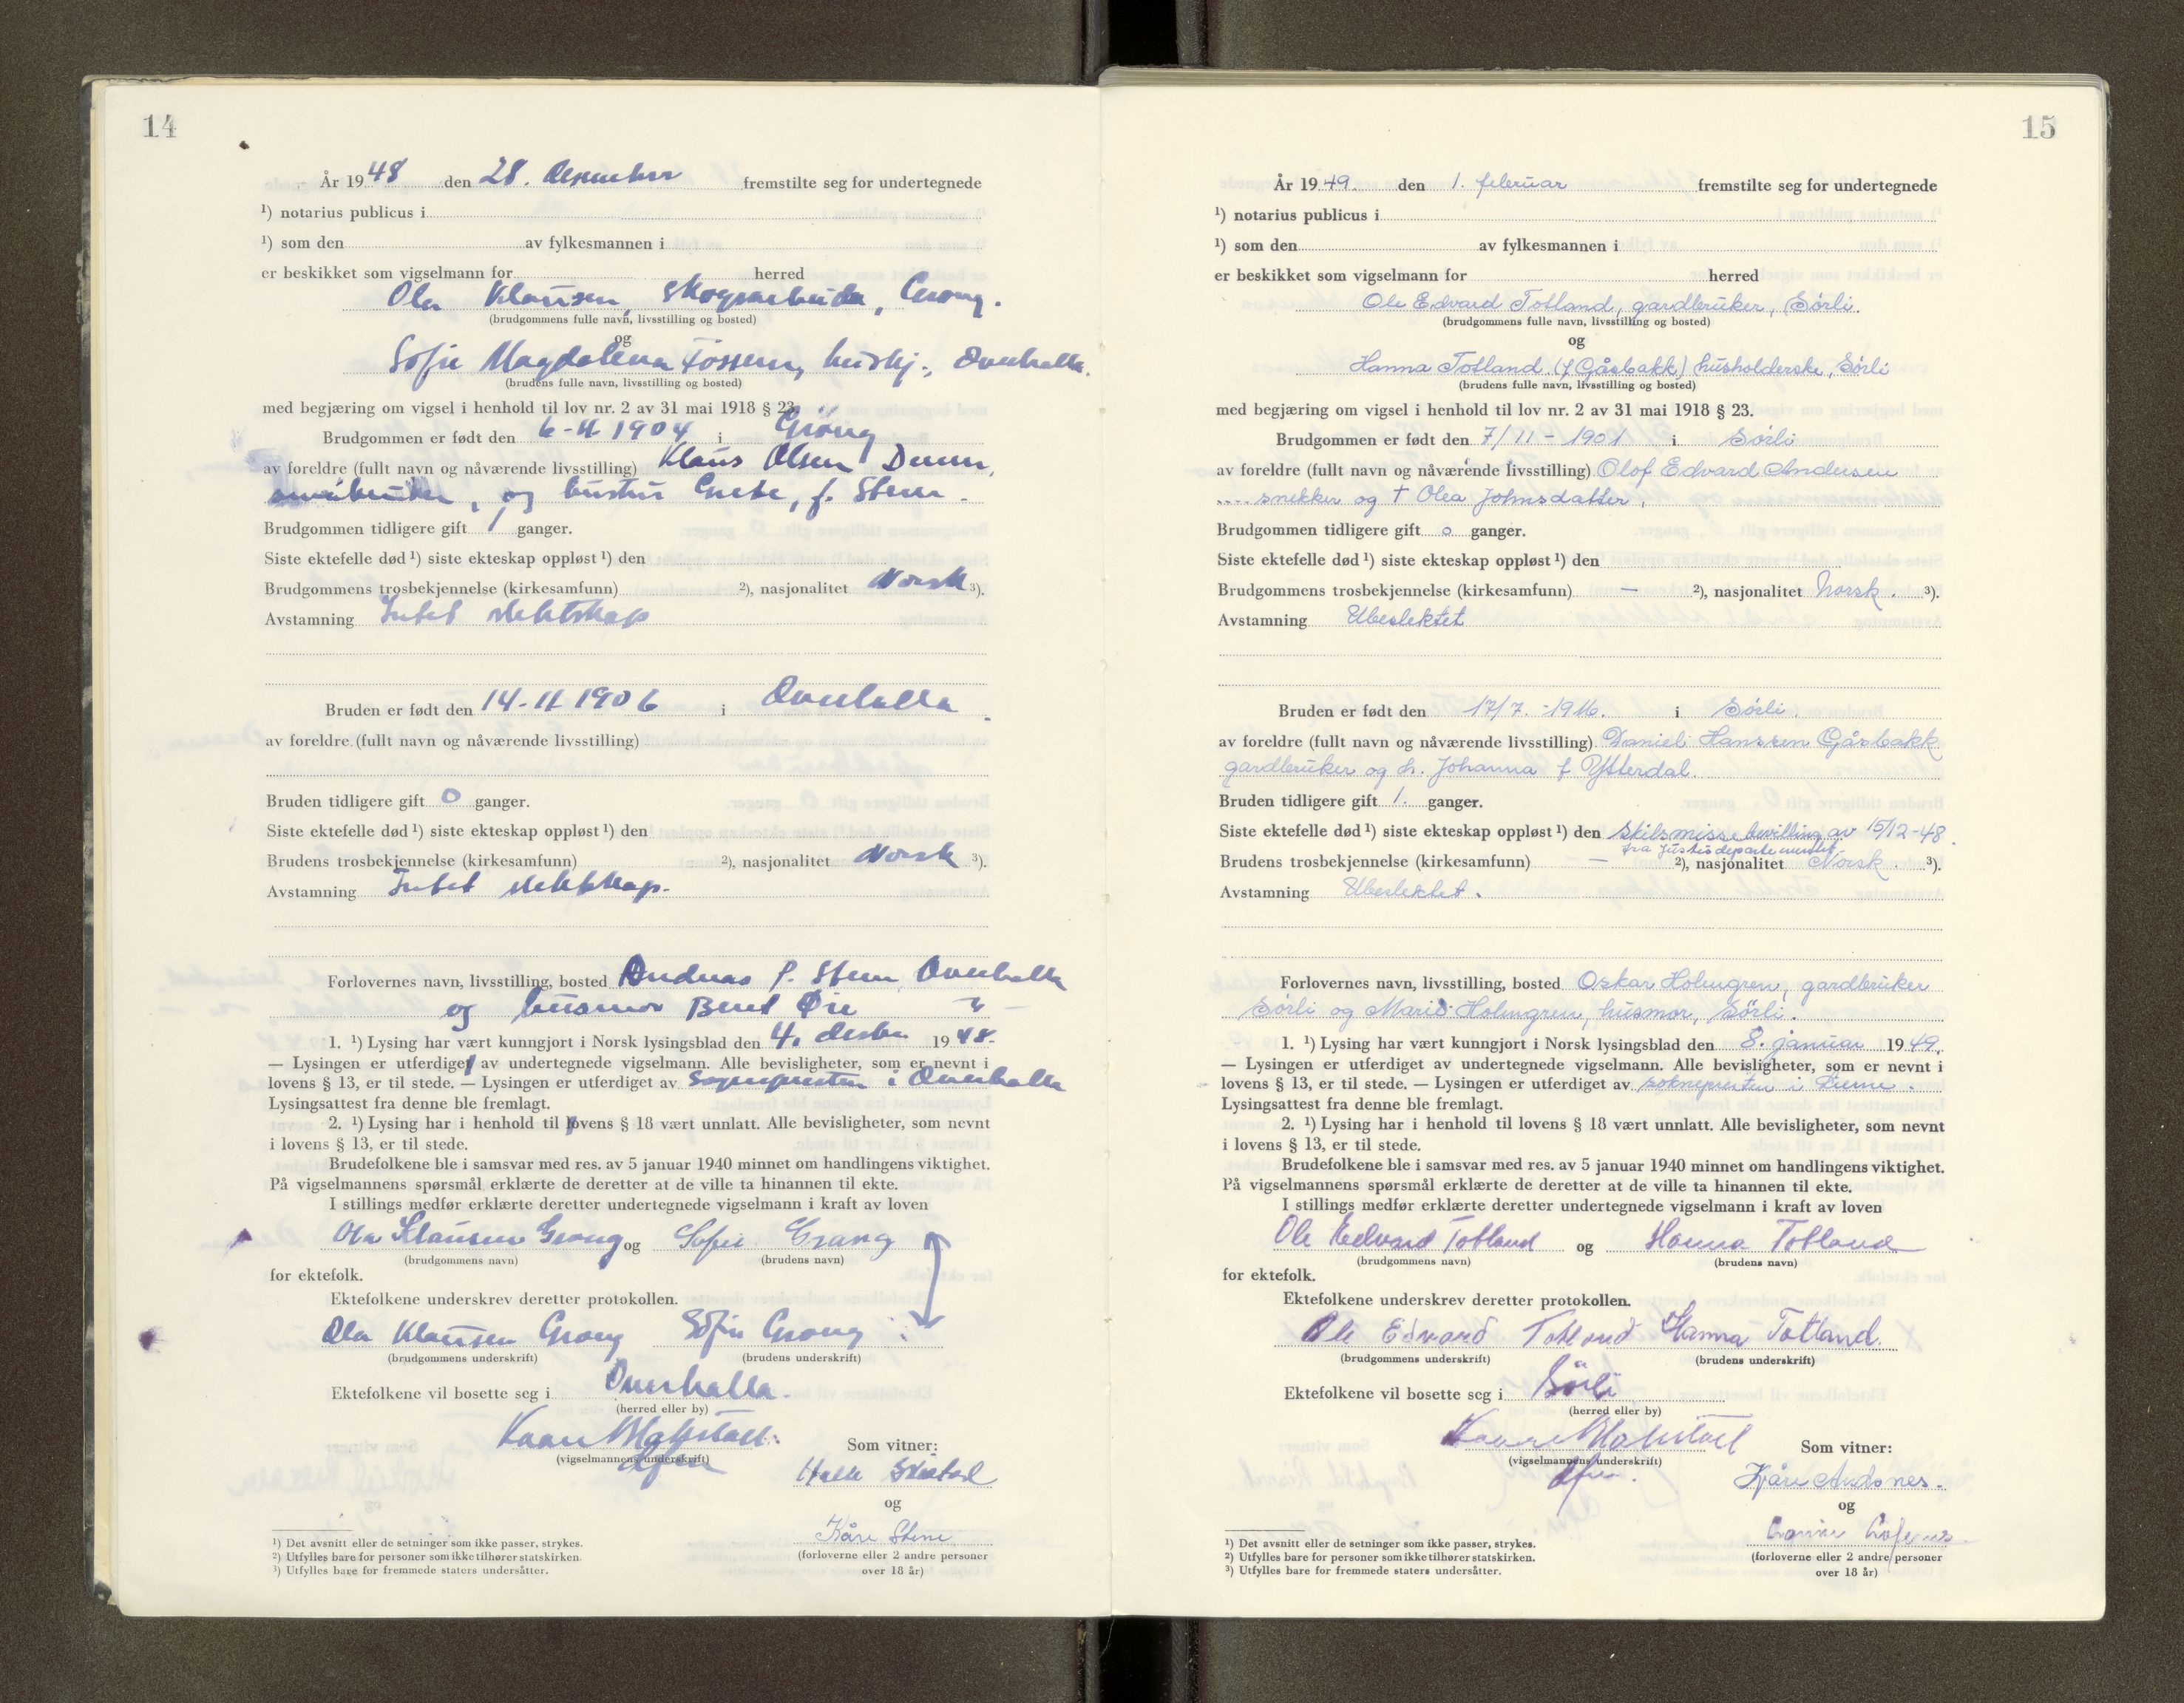 14
År 1948 den 28. desember fremstilte seg for undertegnede
¹) notarius publicus i
¹) som den av fylkesmannen i
er beskikket som vigselmann for herred
Ola Klausen, skogsarbeider, Grong.
(brudgommens fulle navn, livsstilling og bosted)
og
Sofie Magdalena Fossem, hushj., Overhalla.
(brudens fulle navn, livsstilling og bosted)
med begjæring om vigsel i henhold til lov nr. 2 av 31 mai 1918 § 23.
Brudgommen er født den 6-11 1904 i Grong
av foreldre (fullt navn og nåværende livsstilling) Klaus Olsen
og hustru Grete, f. Steen.
Brudgommen tidligere gift 1 ganger.
Siste ektefelle død ¹) siste ekteskap oppløst ¹) den
Brudgommens trosbekjennelse (kirkesamfunn) ²), nasjonalitet Norsk ³).
Avstamning Intet slektskap
Bruden er født den 14-11 1906 i Overhalla.
av foreldre (fullt navn og nåværende livsstilling)
Bruden tidligere gift 0 ganger.
Siste ektefelle død ¹) siste ekteskap oppløst ¹) den
Brudens trosbekjennelse (kirkesamfunn) ²), nasjonalitet Norsk ³).
Avstamning Intet slektskap.
Forlovernes navn, livsstilling, bosted Andreas P. Steen, Overhalla
og husmor Beret Øie " -
1. ¹) Lysing har vært kunngjort i Norsk lysingsblad den 4. desbr 1948.
— Lysingen er utferdiget av undertegnede vigselmann. Alle bevisligheter, som er nevnt i
lovens § 13, er til stede. — Lysingen er utferdiget av Sognepresten i Overhalla
Lysingsattest fra denne ble fremlagt.
2. ¹) Lysing har i henhold til lovens § 18 vært unnlatt. Alle bevisligheter, som nevnt
i lovens § 13, er til stede.
Brudefolkene ble i samsvar med res. av 5 januar 1940 minnet om handlingens viktighet.
På vigselmannens spørsmål erklærte de deretter at de ville ta hinannen til ekte.
I stillings medfør erklærte deretter undertegnede vigselmann i kraft av loven
Ola Klausen Grong og Sofie Grong
(brudgommens navn) (brudens navn)
for ektefolk.
Ektefolkene underskrev deretter protokollen.
Ola Klausen Grong Sofie Grong
(brudgommens underskrift) (brudens underskrift)
Ektefolkene vil bosette seg i Overhalla.
(herred eller by)
(vigselmannens underskrift)
Som vitner:
og
Kåre Stene
(forloverne eller 2 andre personer
over 18 år)
¹) Det avsnitt eller de setninger som ikke passer, strykes.
²) Utfylles bare for personer som ikke tilhører statskirken.
³) Utfylles bare for fremmede staters undersåtter.
15
År 1949. den 1. februar fremstilte seg for undertegnede
¹) notarius publicus i
¹) som den av fylkesmannen i
er beskikket som vigselmann for herred
Ole Edvard Totland, gardbruker, Sørli.
(brudgommens fulle navn, livsstilling og bosted)
og
Hanna Totland (f Gåsbakk) husholderske, Sørli
(brudens fulle navn, livsstilling og bosted)
med begjæring om vigsel i henhold til lov nr. 2 av 31 mai 1918 § 23.
Brudgommen er født den 7/11 - 1901 i Sørli
av foreldre (fullt navn og nåværende livsstilling) Olof Edvard Andersen
.... snekker og † Olea Johnsdatter.
Brudgommen tidligere gift 0 ganger.
Siste ektefelle død ¹) siste ekteskap oppløst ¹) den
Brudgommens trosbekjennelse (kirkesamfunn) — ²), nasjonalitet Norsk. ³).
Avstamning Ubeslektet
Bruden er født den 17/7. -1916. i Sørli.
av foreldre (fullt navn og nåværende livsstilling) Daniel Hanssen Gåsbakk
gardbruker og h. Johanna f Ytterdal.
Bruden tidligere gift 1. ganger.
Siste ektefelle død ¹) siste ekteskap oppløst ¹) den Skilsmisse bevilling av 15/12-48.
fra Justisdepartementet
Brudens trosbekjennelse (kirkesamfunn) — ²), nasjonalitet Norsk. ³).
Avstamning Ubeslektet.
Forlovernes navn, livsstilling, bosted Oskar Holmgren, gardbruker
Sørli og Marie Holmgren, husmor, Sørli.
1. ¹) Lysing har vært kunngjort i Norsk lysingsblad den 8. januar 1949.
— Lysingen er utferdiget av undertegnede vigselmann. Alle bevisligheter, som er nevnt i
lovens § 13, er til stede. — Lysingen er utferdiget av soknepresten i Lierne.
Lysingsattest fra denne ble fremlagt.
2. ¹) Lysing har i henhold til lovens § 18 vært unnlatt. Alle bevisligheter, som nevnt
i lovens § 13, er til stede.
Brudefolkene ble i samsvar med res. av 5 januar 1940 minnet om handlingens viktighet.
På vigselmannens spørsmål erklærte de deretter at de ville ta hinannen til ekte.
I stillings medfør erklærte deretter undertegnede vigselmann i kraft av loven
Ole Edvard Totland og Hanna Totland
(brudgommens navn) (brudens navn)
for ektefolk.
Ektefolkene underskrev deretter protokollen.
Ole Edvard Totland Hanna Totland.
(brudgommens underskrift) (brudens underskrift)
Ektefolkene vil bosette seg i Sørli
(herred eller by)
(vigselmannens underskrift)
Som vitner:
Kåre Andsnes.
og
(forloverne eller 2 andre personer
over 18 år)
¹) Det avsnitt eller de setninger som ikke passer, strykes.
²) Utfylles bare for personer som ikke tilhører statskirken.
³) Utfylles bare for fremmede staters undersåtter.